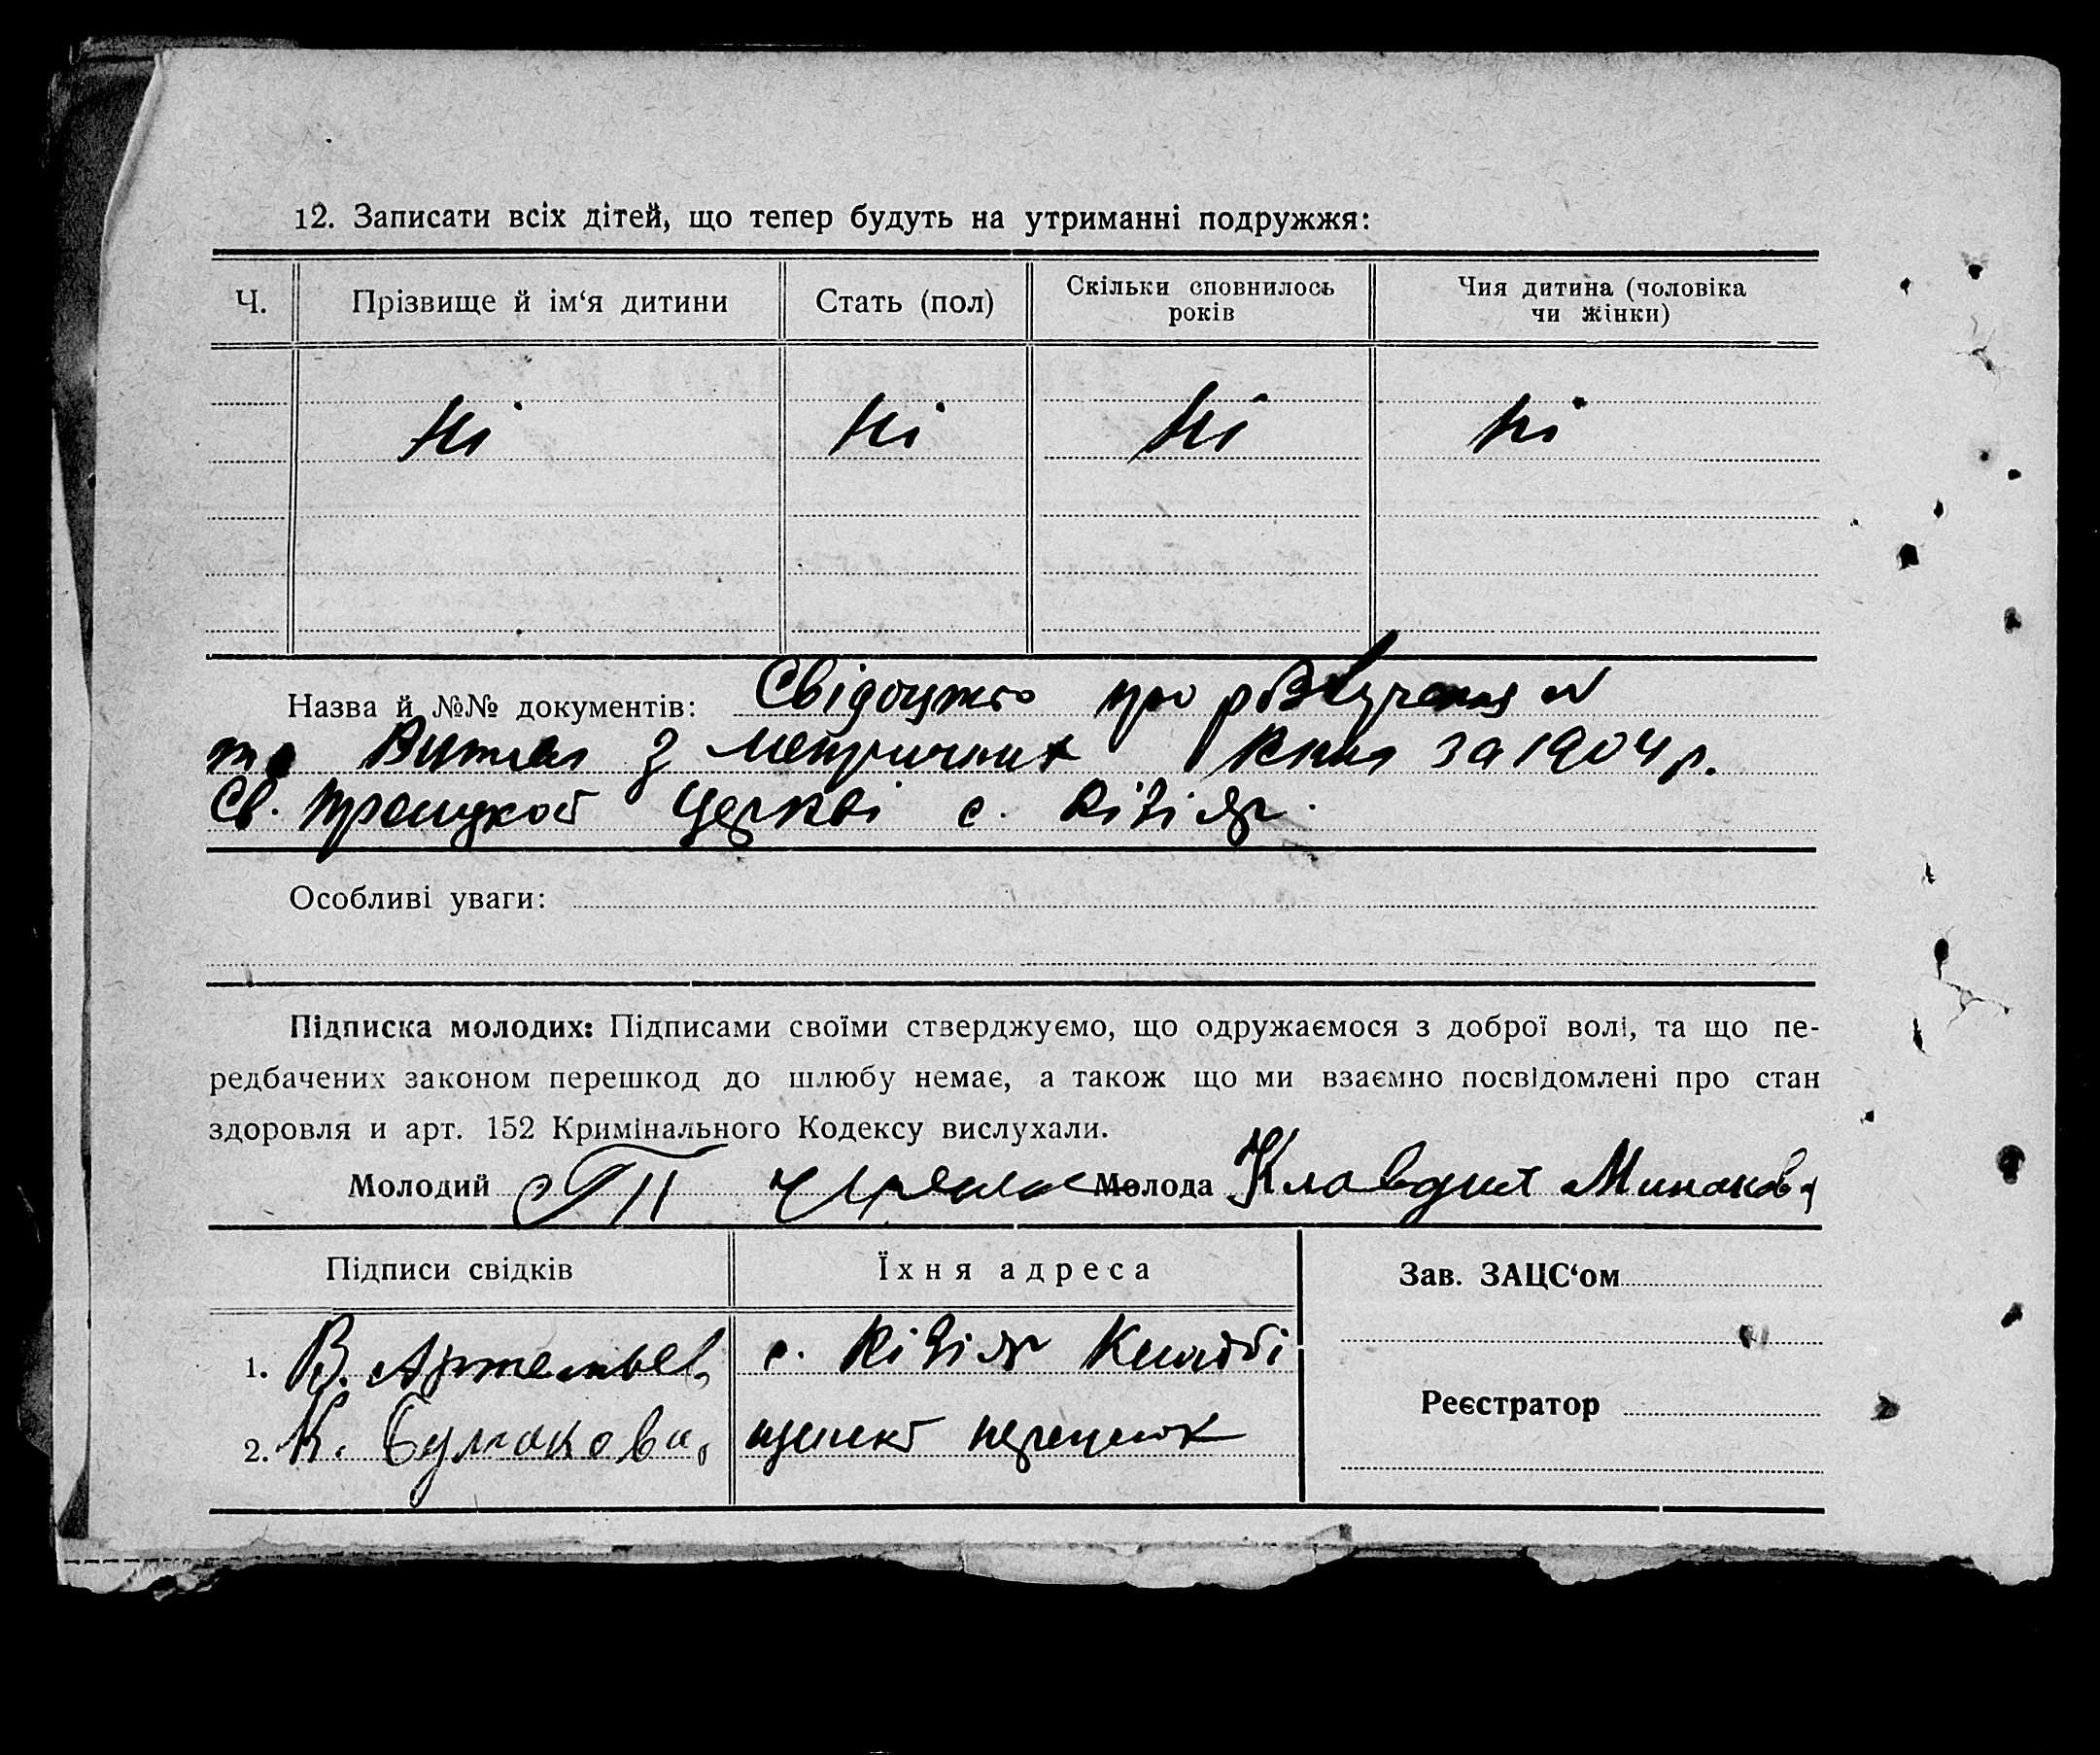 12. Записати всіх дітей, що тепер будуть на утриманні подружжя:
Ч. Прізвище й ім‘я дитини Стать (пол) Скільки сповнилось років Чия дитина (чоловіка чи жінки)
Ні Ні Ні Ні
Назва й №№ документів: Свідоцтво про
та Витяг з метричних книг за 1904 р.
Св. Троицкой церкві с.
Особливі уваги:
Підписка молодих: Підписами своїми стверджуємо, що одружаємося з доброї волі, та що пе-
редбачених законом перешкод до шлюбу немає, а також що ми взаємно посвідомлені про стан
здоровля и арт. 152 Кримінального Кодексу вислухали.
Молодий Молода Клавдия Минакова
Підписи свідків Їхня адреса Зав. ЗАЦС‘ом
1. В. Артемьев с.
Реєстратор
2. К. переулок